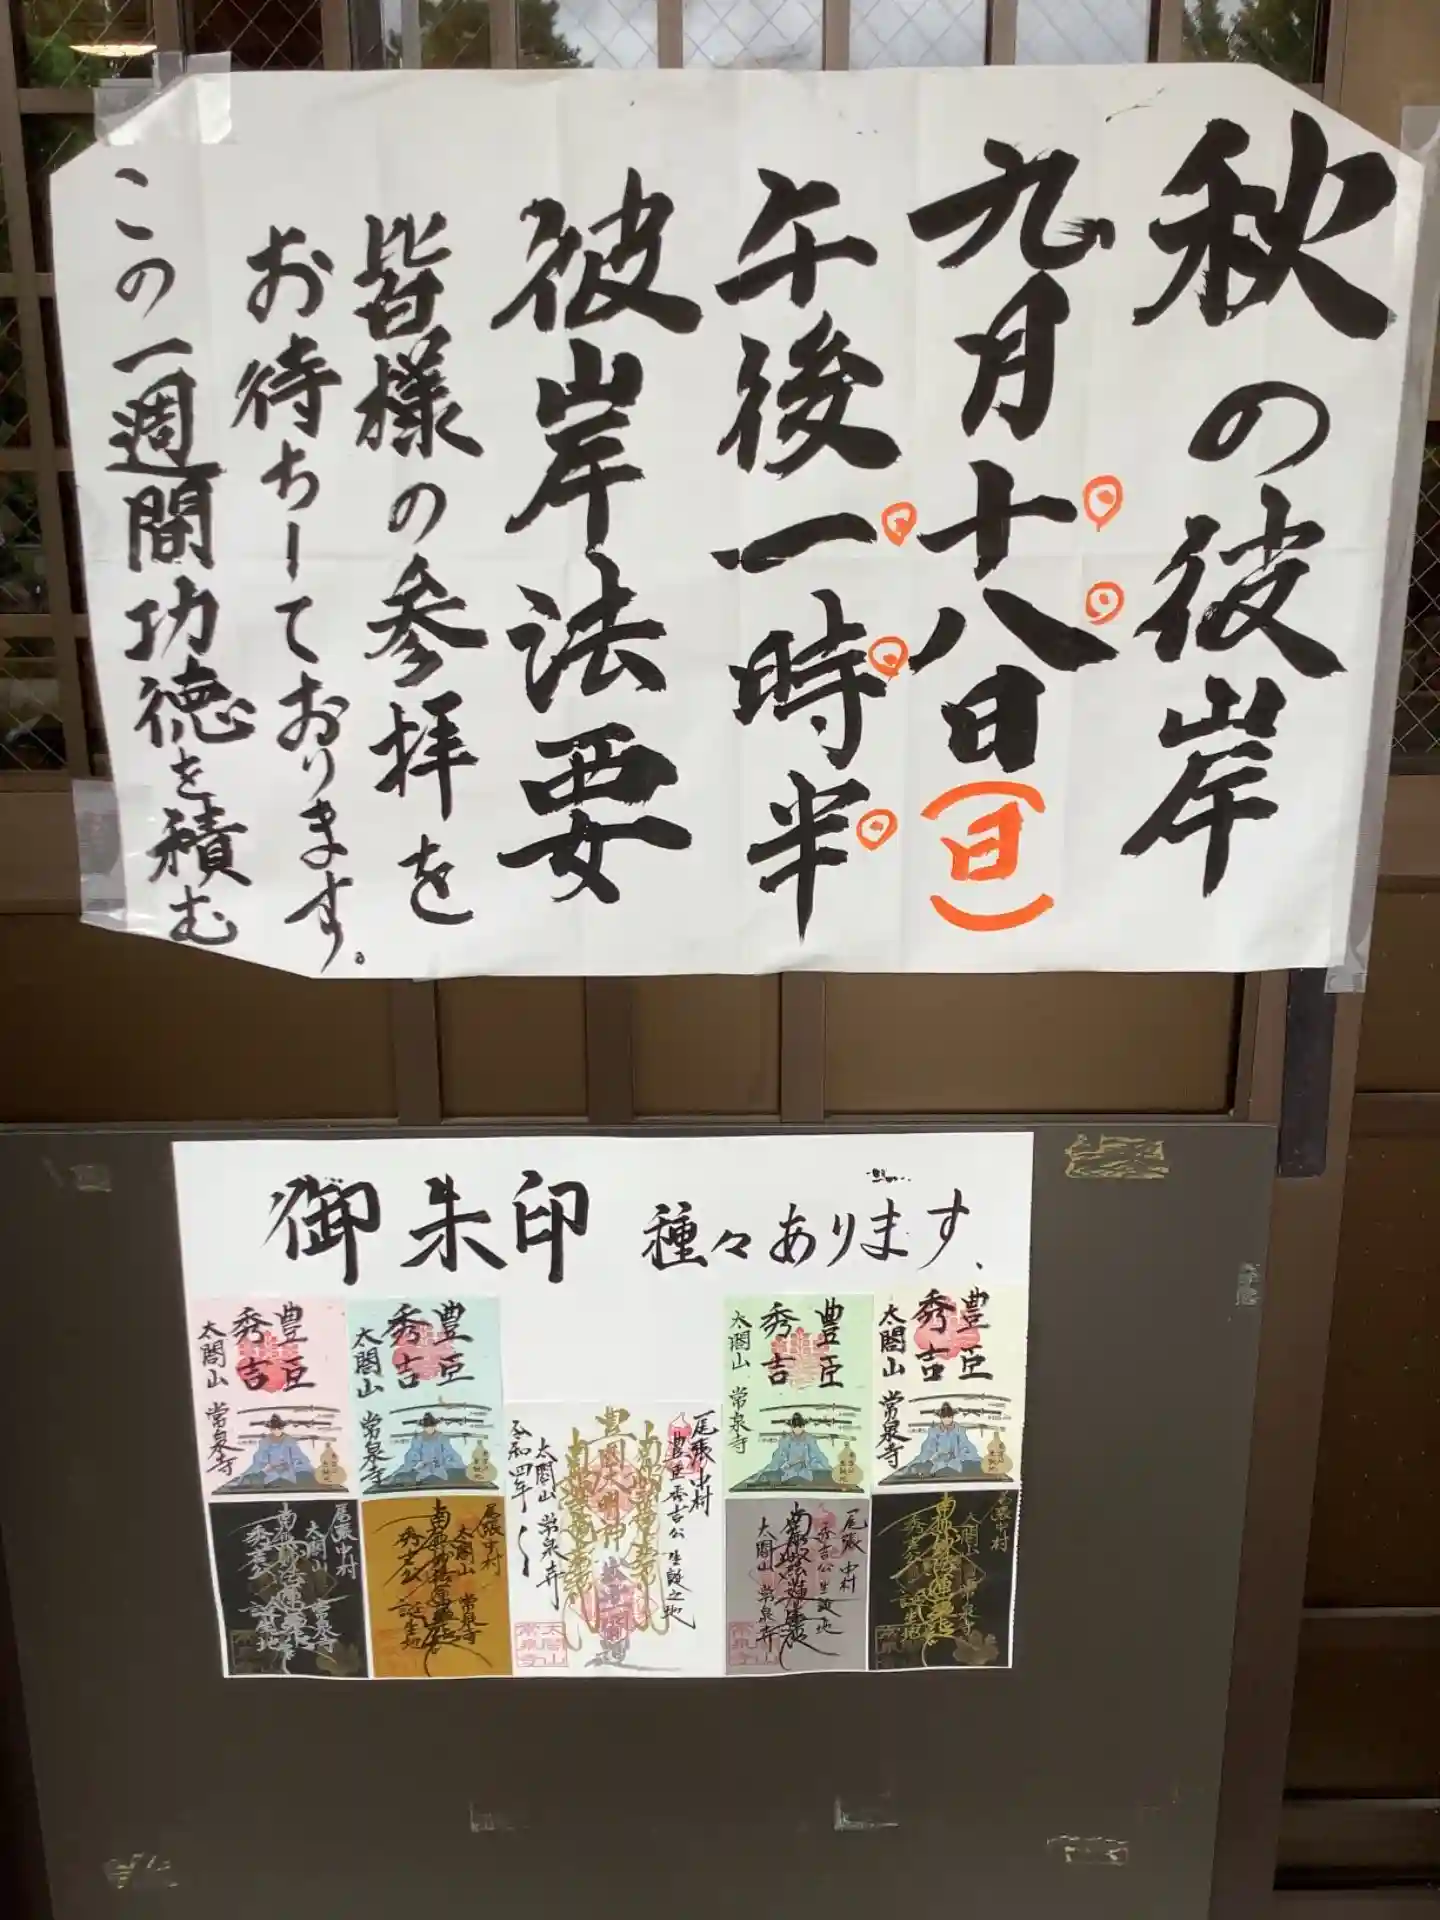 秋の彼岸
九月十八日(日)
午後一時半
彼岸法要
皆様の参拝を
お待ちしております。
この一週間功徳を積む
御朱印 種々あります
豊臣
秀吉
太閤山 常泉寺
豊臣
秀吉
太閤山 常泉寺
豊臣
秀吉
太閤山 常泉寺
豊臣
秀吉
太閤山 常泉寺
尾張中村
豊臣秀吉公 生誕之地
豊國大明神
太閤山 常泉寺
令和四年
太閤山
常泉寺
尾張中村
太閤山 常泉寺
南無妙法蓮華経
秀吉公 誕生地
尾張中村
太閤山 常泉寺
南無妙法蓮華経
秀吉公 誕生地
尾張中村
秀吉公生誕地
南無妙法蓮華経
太閤山 常泉寺
尾張中村
太閤山 常泉寺
南無妙法蓮華経
秀吉公 誕生地